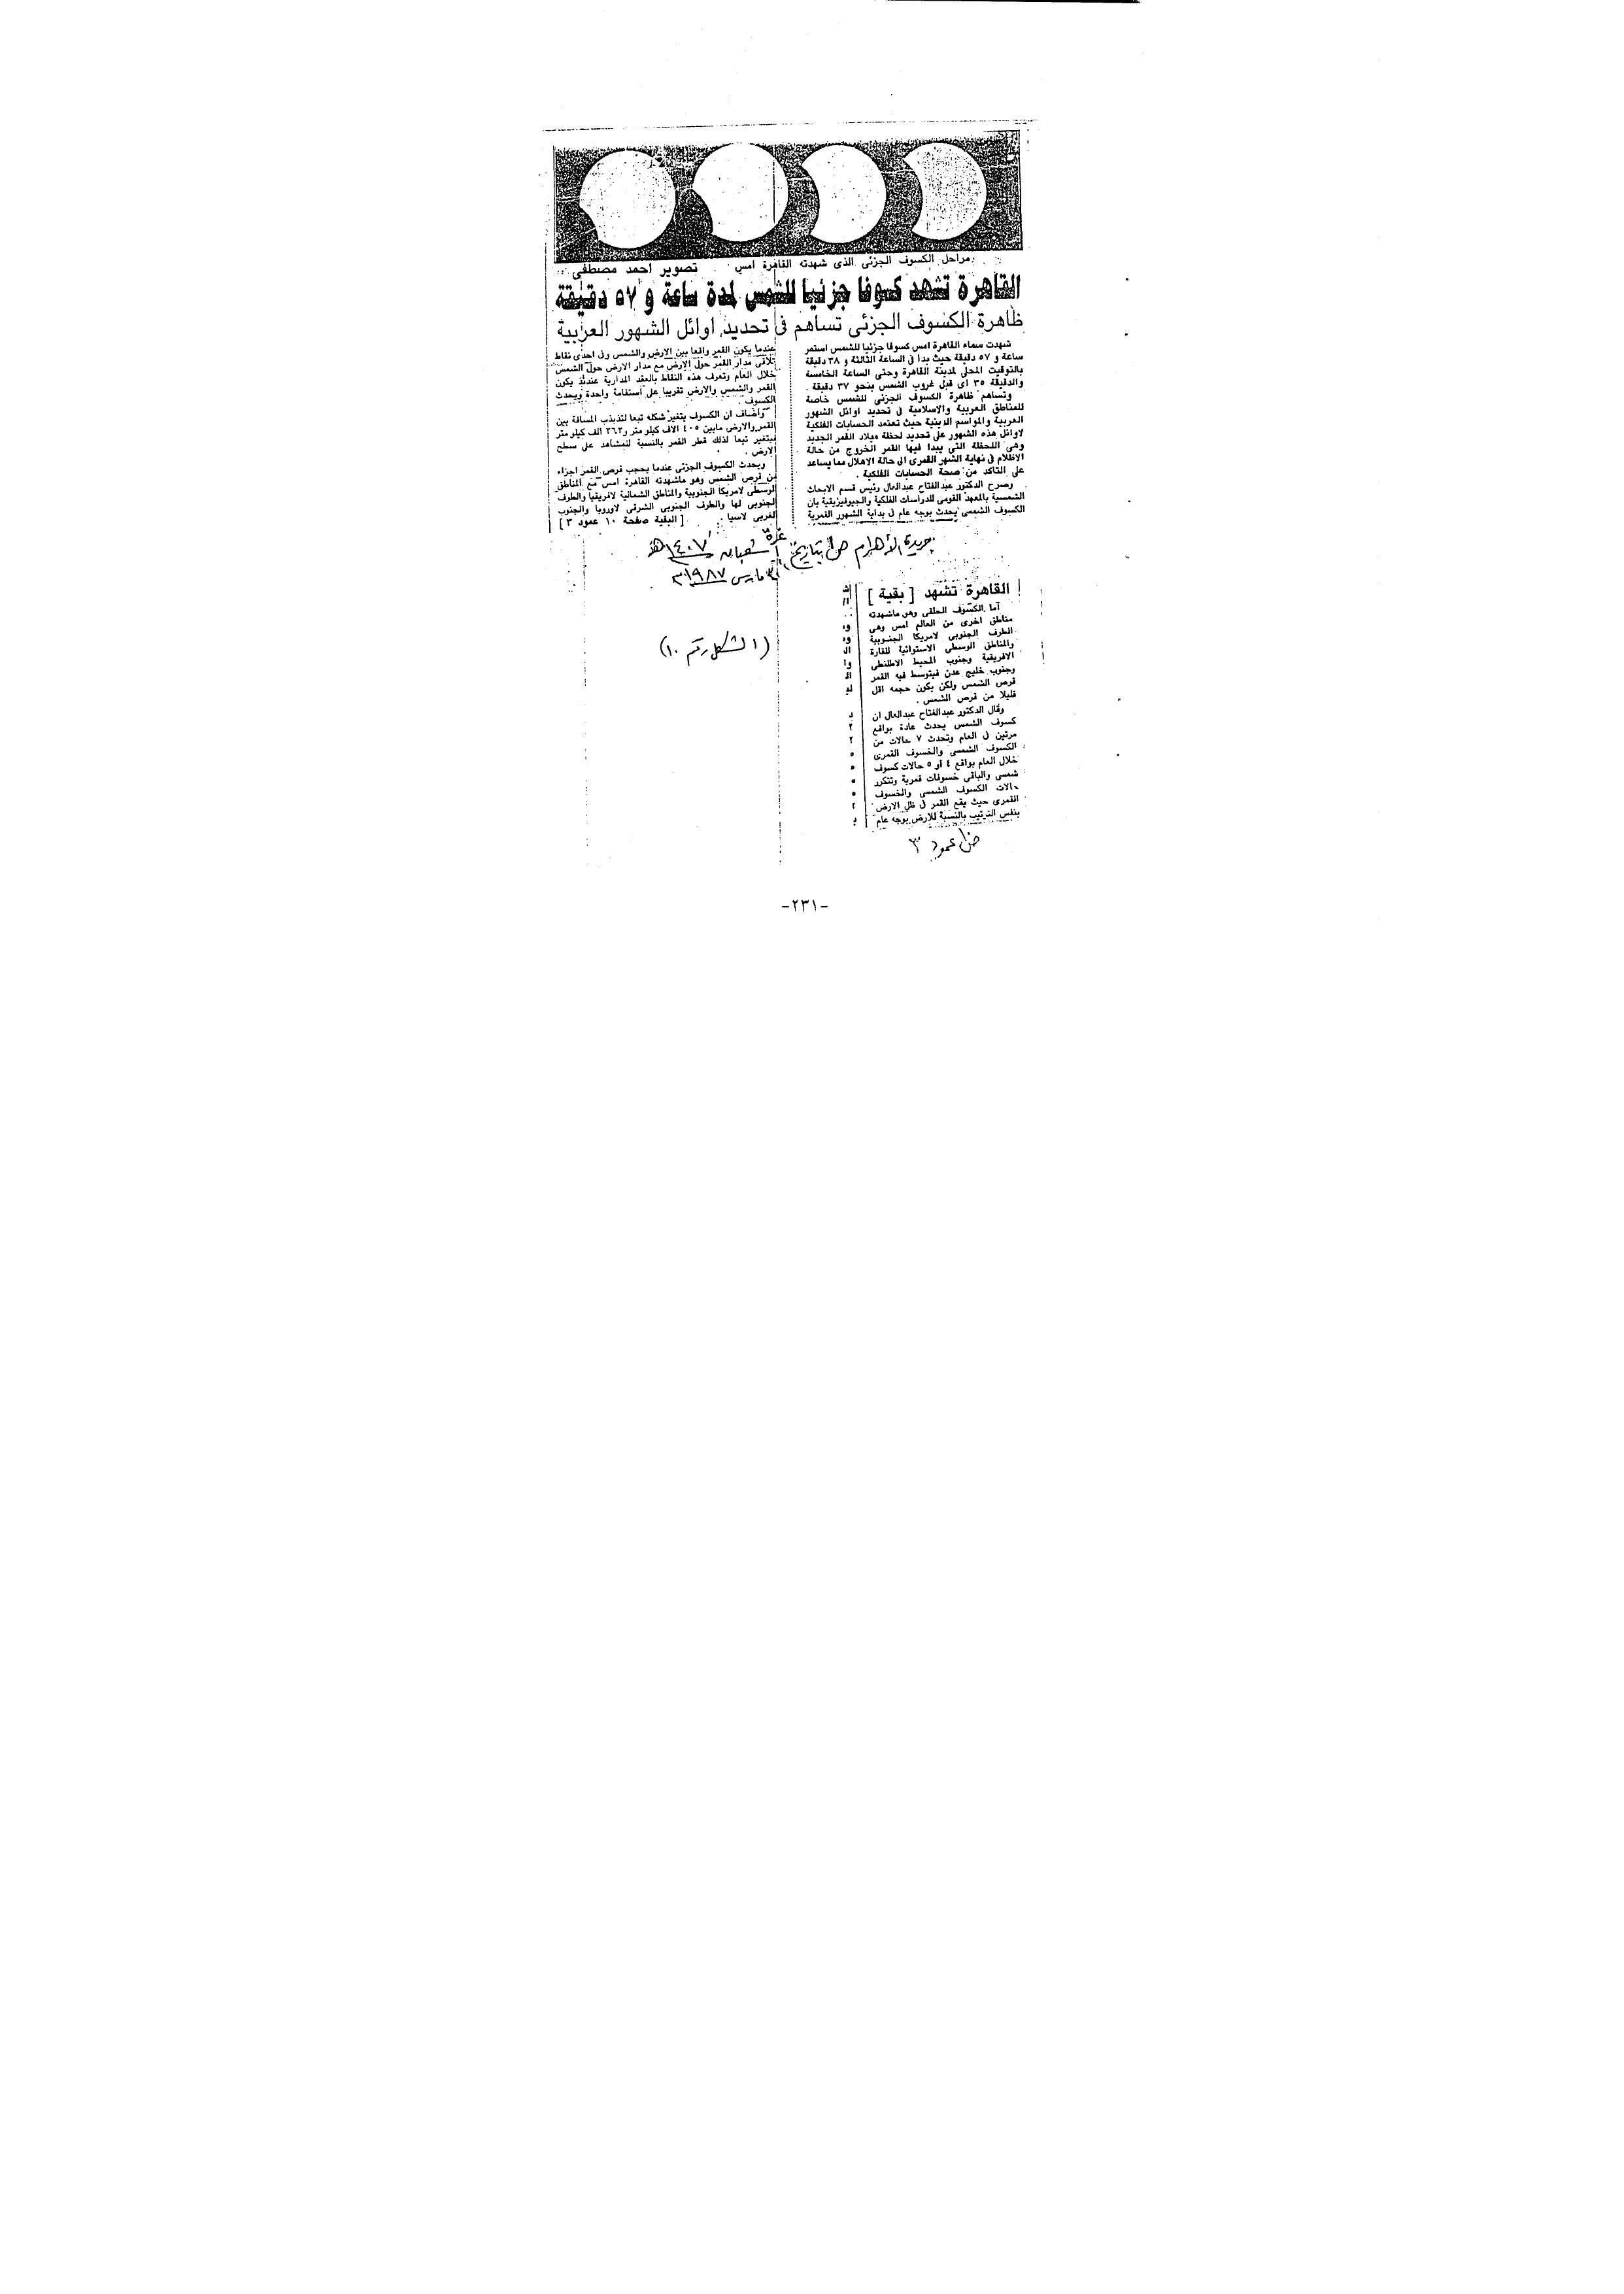 مراحل الكسوف الجزئى الذى شهدته القاهرة امس . تصوير احمد مصطفى
القاهرة تشهد كسوفا جزئيا للشمس لمدة ساعة و ٥٧ دقيقة
ظاهرة الكسوف الجزئى تساهم فى تحديد اوائل الشهور العربية
شهدت سماء القاهرة امس كسوفا جزئيا للشمس استمر
ساعة و ٥٧ دقيقة حيث بدا فى الساعة الثالثة و ٣٨ دقيقة
بالتوقيت المحلى لمدينة القاهرة وحتى الساعة الخامسة
والدقيقة ٣٥ اى قبل غروب الشمس بنحو ٣٧ دقيقة .
وتساهم ظاهرة الكسوف الجزئى للشمس خاصة
للمناطق العربية والاسلامية فى تحديد اوائل الشهور
العربية والمواسم الدينية حيث تعتمد الحسابات الفلكية
لاوائل هذه الشهور على تحديد لحظة ميلاد القمر الجديد
وهى اللحظة التى يبدا فيها القمر الخروج من حالة
الاظلام فى نهاية الشهر القمرى الى حالة الاهلال مما يساعد
على التاكد من صحة الحسابات الفلكية .
وصرح الدكتور عبدالفتاح عبدالعال رئيس قسم الابحاث
الشمسية بالمعهد القومى للدراسات الفلكية والجيوفيزيقية بان
الكسوف الشمسى يحدث بوجه عام فى بداية الشهور القمرية
عندما يكون القمر واقعا بين الارض والشمس وفى احدى نقاط
تلاقى مدار القمر حول الارض مع مدار الارض حول الشمس
خلال العام وتعرف هذه النقاط بالعقد المدارية عندئذ يكون
القمر والشمس والارض تقريبا على استقامة واحدة ويحدث
الكسوف .
واضاف ان الكسوف يتغير شكله تبعا لتذبذب المسافة بين
القمر والارض مابين ٤٠٥ الاف كيلو متر و٣٦٣ الف كيلو متر
فيتغير تبعا لذلك قطر القمر بالنسبة للمشاهد على سطح
الارض .
ويحدث الكسوف الجزئى عندما يحجب قرص القمر اجزاء
من قرص الشمس وهو ماشهدته القاهرة امس مع المناطق
الوسطى لامريكا الجنوبية والمناطق الشمالية لافريقيا والطرف
الجنوبى لها والطرف الجنوبى الشرقى لاوروبا والجنوب
الغربى لاسيا . [ البقية صفحة ١٠ عمود ٣ ]
جريدة الأهرام ص١ بتاريخ غرة شعبان ١٤٠٧هـ
مارس ١٩٨٧م
القاهرة تشهد [ بقية ]
اما الكسوف الحلقى وهو ماشهدته
مناطق اخرى من العالم امس وهى
الطرف الجنوبى لامريكا الجنوبية
والمناطق الوسطى الاستوائية للقارة
الافريقية وجنوب المحيط الاطلنطى
وجنوب خليج عدن فيتوسط فيه القمر
قرص الشمس ولكن يكون حجمه اقل
قليلا من قرص الشمس .
وقال الدكتور عبدالفتاح عبدالعال ان
كسوف الشمس يحدث عادة بواقع
مرتين فى العام وتحدث ٧ حالات من
الكسوف الشمسى والخسوف القمرى
خلال العام بواقع ٤ او ٥ حالات كسوف
شمسى والباقى خسوفات قمرية وتتكرر
حالات الكسوف الشمسى والخسوف
القمرى حيث يقع القمر فى ظل الارض
بنفس الترتيب بالنسبة للارض بوجه عام
(الشكل رقم ١٠)
ص١٠ عمود ٣
-٢٣١-